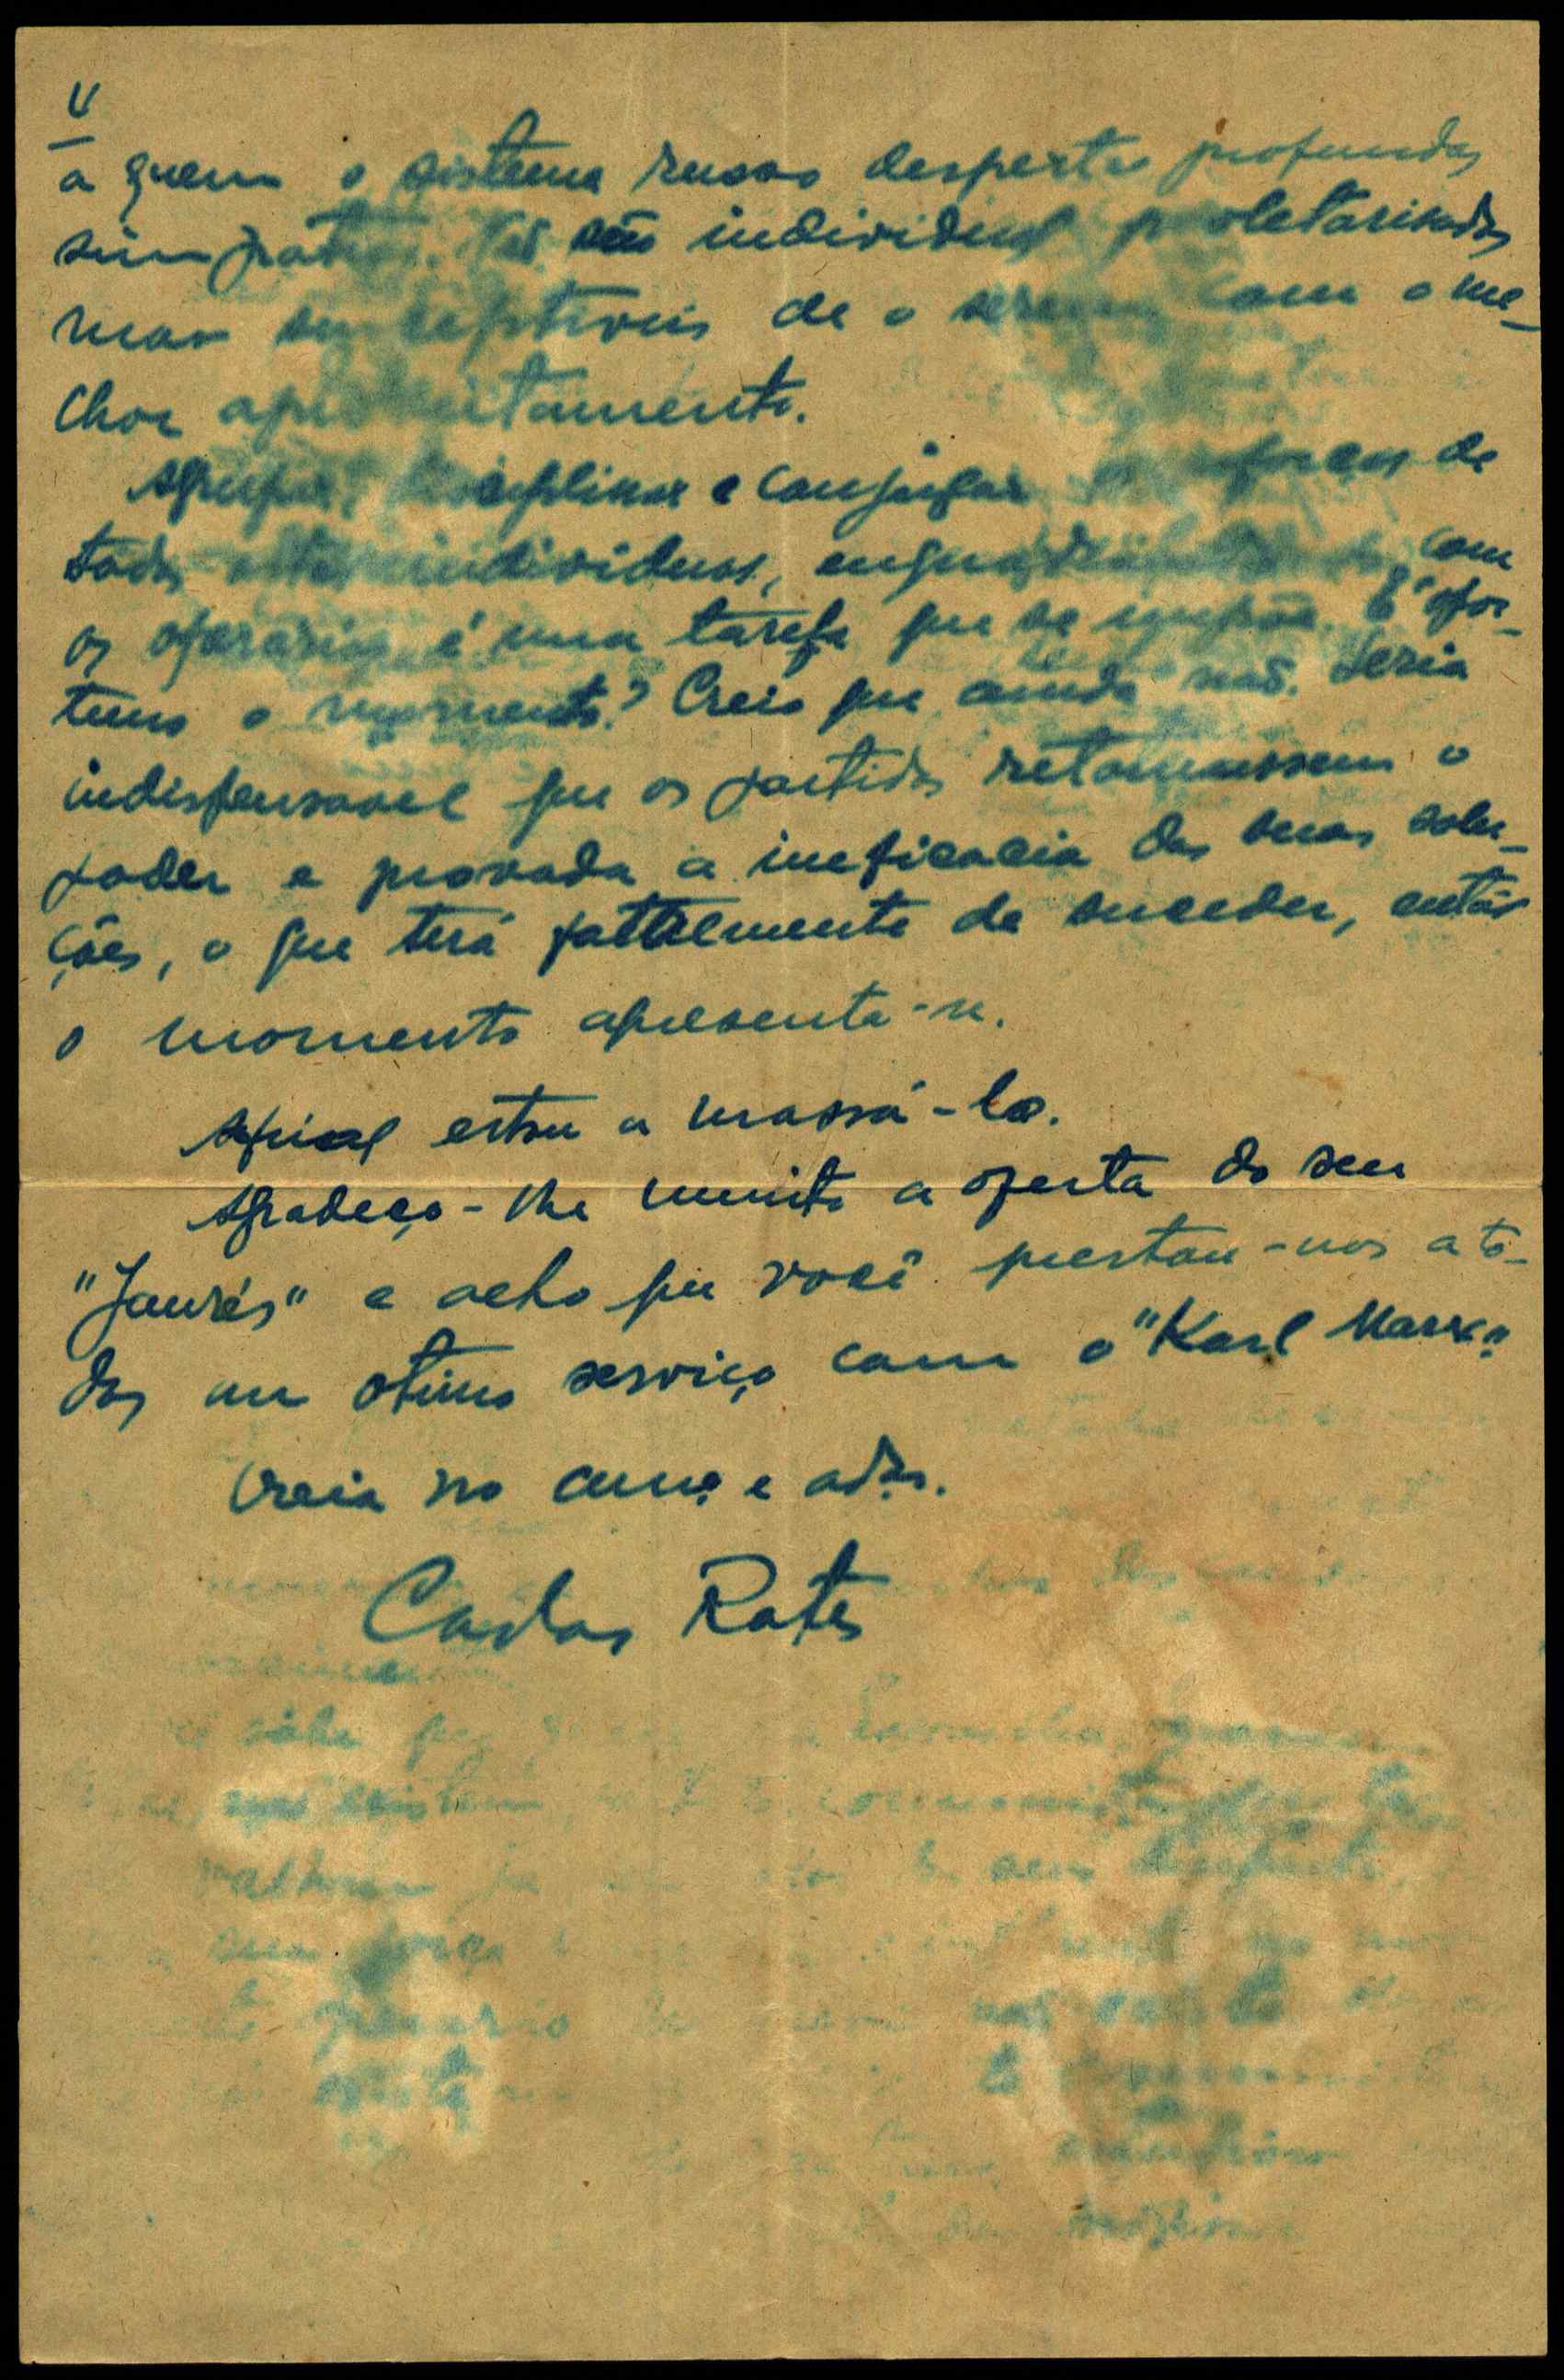 V
a quem o sistema russo desperta profundas
simpatias. Não são individuos proletarisados
mas susceptiveis de o serem com o me-
lhor aproveitamento.
Agrupar, disciplinar e conjugar os esforços de
todos estes individuos, com
os operarios é uma tarefa que se impõe. É opor-
tuno o momento? Creio que ainda não. Seria
indispensavel que os partidos retomassem o
poder e provada a ineficacia das suas solu-
ções, o que terá fatalmente de suceder, então
o momento apresenta-se.
Afinal estou a massá-lo.
Agradeço-lhe muito a oferta do seu
"Jaurés" e acho que você prestou-nos a to-
dos um otimo serviço com o "Karl Marx".
Creia no cama e
Carlos Rates